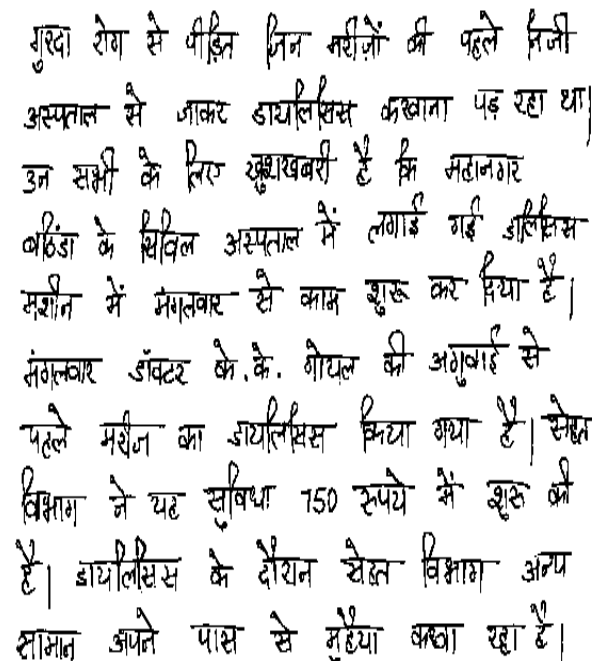 गुरदा रोग से पीड़ित जिन मरीज़ों की पहले निजी
अस्पताल से जाकर डायलिसिस करवाना पड़ रहा था|
उन सभी के लिए खुशखबरी है कि महानगर
बठिंडा के सिविल अस्पताल में लगाई गई डालिसिस
मशीन में मंगलवार से काम शुरू कर दिया है|
मंगलवार डॉक्टर के.के. गोयल की अगुवाई से
पहले मरीज का डायलिसिस किया गया है| सेहत
विभाग ने यह सुविधा 750 रुपये में शुरू की
है| डायलिसिस के दौरान सेहत विभाग अन्य
सामान अपने पास से मुहैया करवा रहा है|